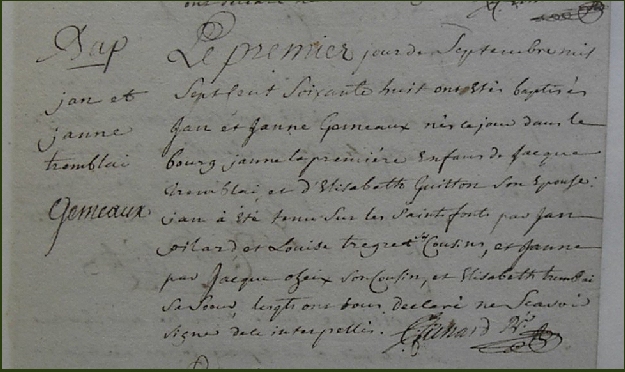 Bap
jan et
janne
tremblai
Gemeaux
Le premier jour de Septembre mil
Sept Cent Soixante huit ont estés baptisés
Jan et Janne Gemeaux nés ce jour dans le
bourg janne la première Enfans de Jacque
tremblai et d'Elisabeth Guitton Son Epouse:
jan à été tenu Sur les Saint fonts par Jan
et Louise Cousins, et Janne
par Jacque cheix Son Cousin, et Elisabeth tremblai
Sa Soeur, lesqts ont tous declaré ne Scavoir
Signé de ce interpellés.